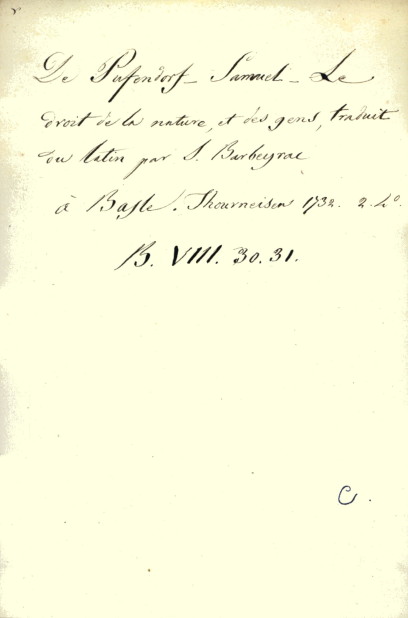 De Pufendorf - Samuel - Le
droit de la nature, et des gens, traduit
du latin par S. Barbeyrac
à Basle. Thourneisen 1732. 2. 4°.
B. VIII. 30. 31.
C.